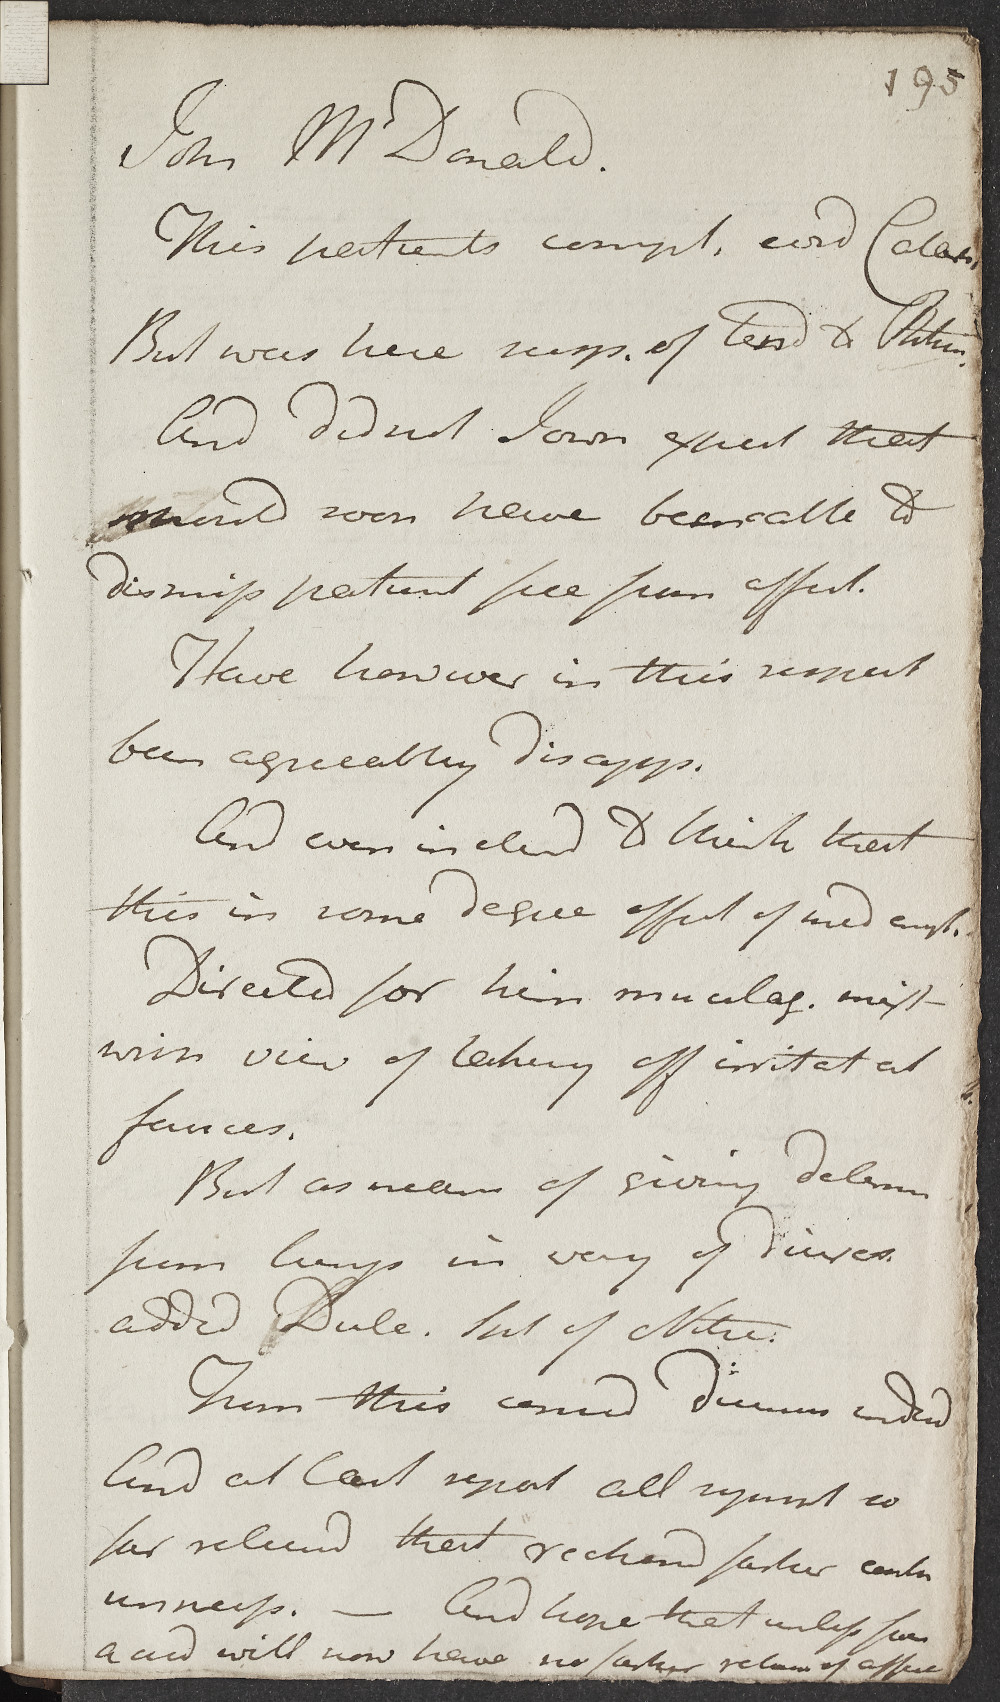 195
John McDonald.
This patients compl. consd Catarr.
But was here susp. of tend to Phthis.
And did not I own expect that
should soon have been able to
dismiss patient free from affect.
Have however in this respect
been agreeably disapp.
And even inclind to think that
this in some degree effect of med empl.
Directed for him mucilag. mixt
with view of taking off irritat at
fauces.
But as means of giving determ
from lungs in way of diures.
added Dulc. Spt of Nitre.
From this ensued diuresis indeed
And at last report all sympt so
far relieved that reckond farther contin
unnecess. — And hope that unless from
accid will now have no farther return of affect